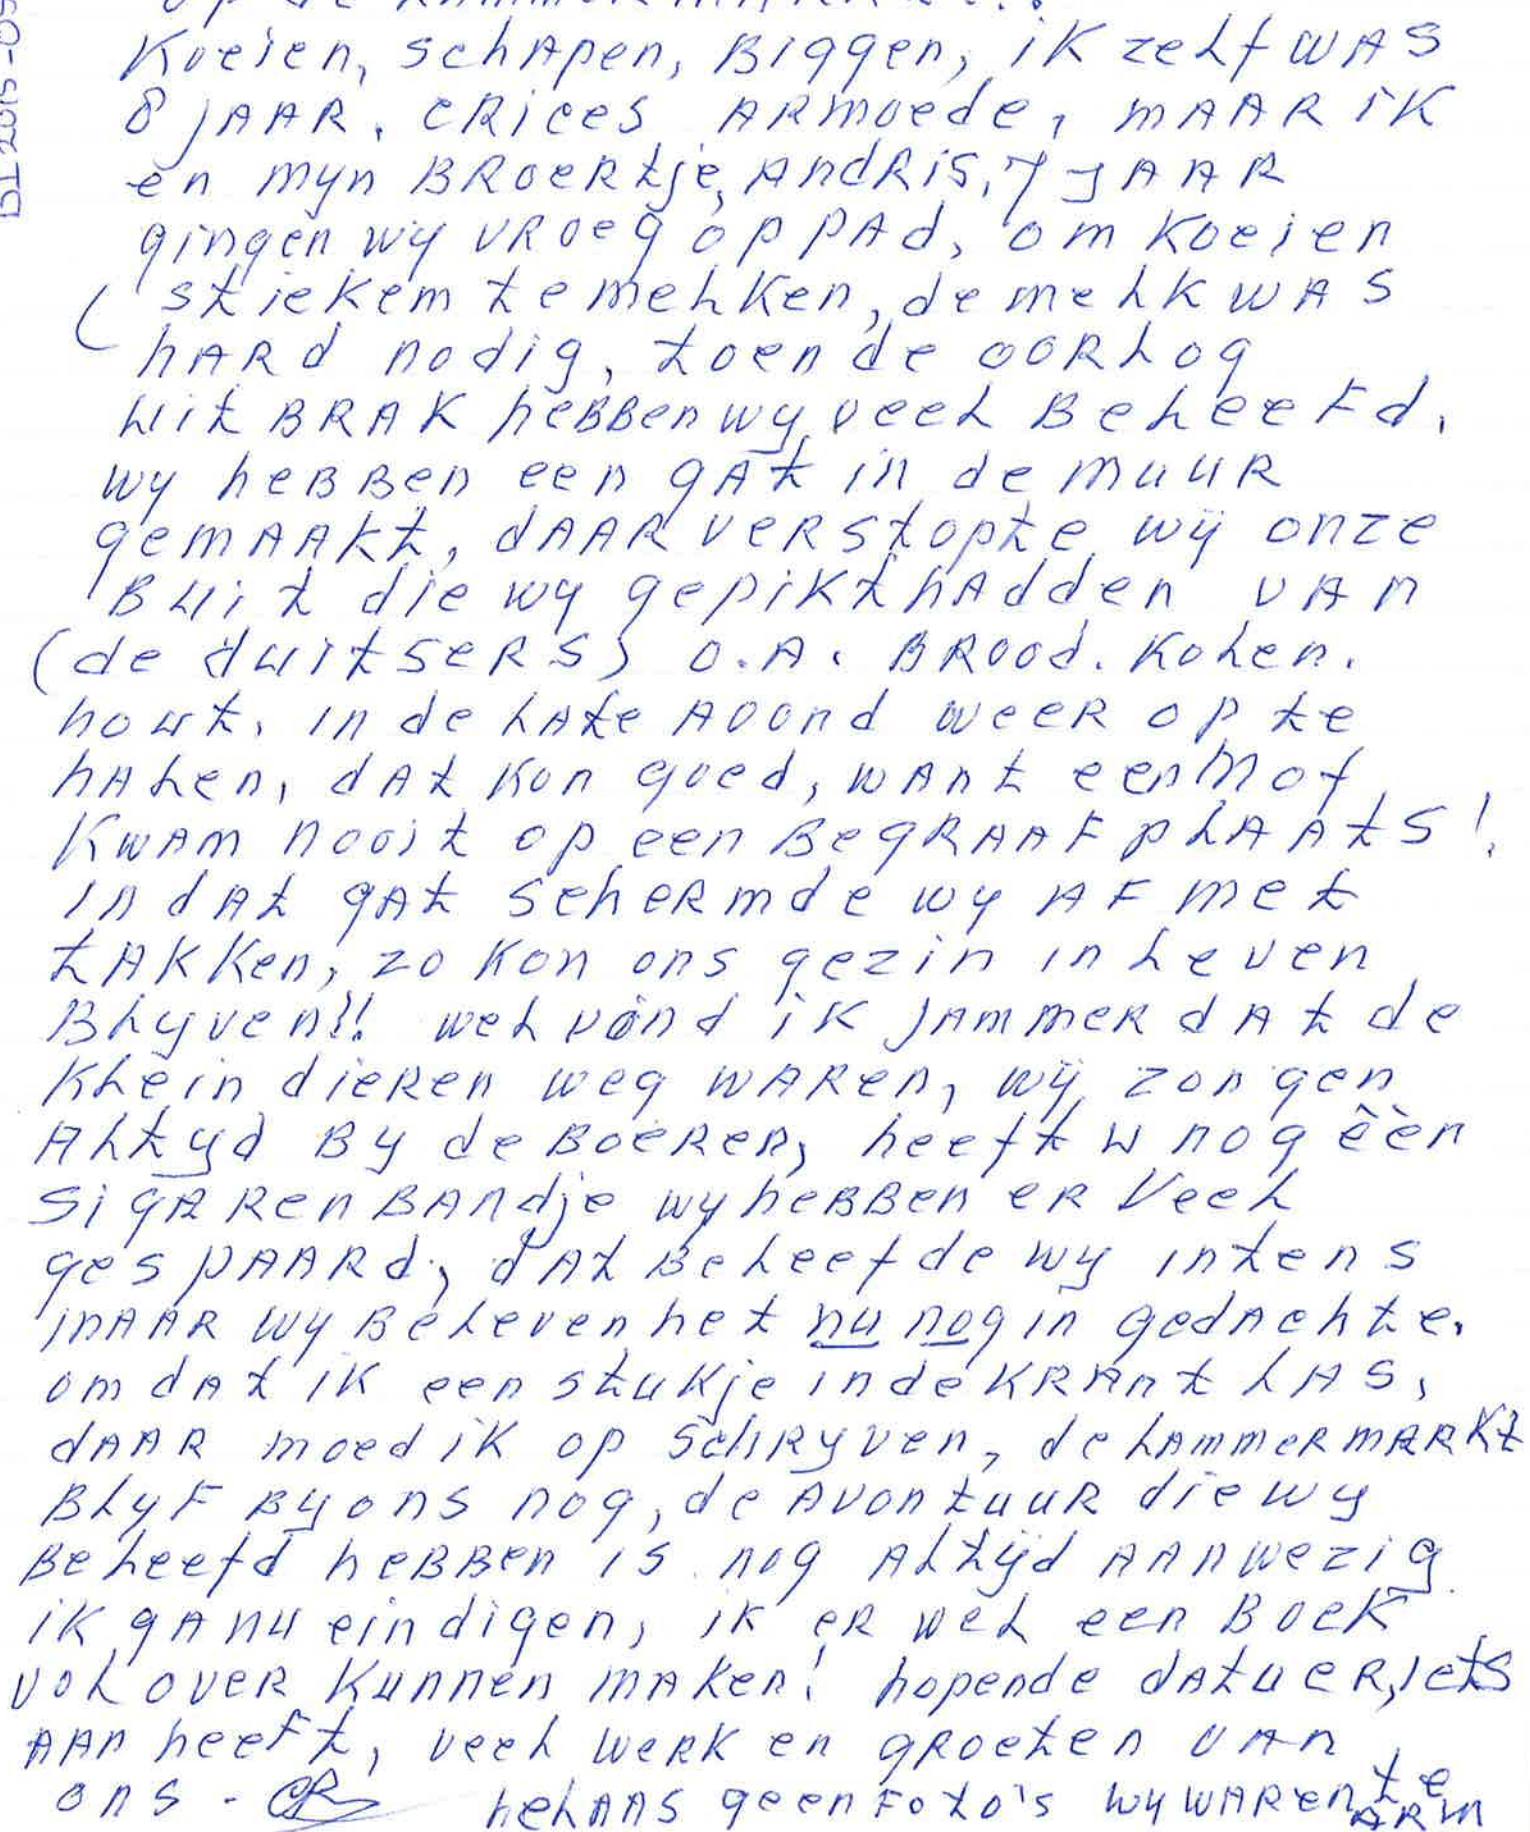 Koeien, schapen, Biggen, ik zelf was
8 jaar. crices armoede, maar ik
en myn Broertje, Andris, 7 jaar
gingen wy vroeg op pad, om Koeien
( stiekem te melken, de melk was
hard nodig, toen de oorlog
uit BRAK hebben wy veel Beleefd.
wy hebben een gat in de muur
gemaakt, daar verstopte wij onze
Buit die wy gepikt hadden van
(de duitsers) o.a. Brood. Kolen.
hout. in de late avond weer op te
halen, dat kon goed, want een mof
Kwam nooit op een Begraafplaats!.
in dat gat schermde wy af met
takken, zo kon ons gezin in leven
Blyven!! wel vond ik jammer dat de
Klein dieren weg waren, wij zongen
Altyd By de Boeren, heeft u nog èèn
sigarenbandje wy hebben er veel
gespaard, dat Beleefde wy intens
maar wy Beleven het nu nog in gedachte.
omdat ik een stukje in de krant las,
daar moed ik op schryven, de Lammermarkt
Blyf By ons nog, de avontuur die wy
Beleefd hebben is nog altijd aanwezig
ik ga nu eindigen, ik er wel een Boek
vol over kunnen maken! hopende dat u er iets
aan heeft, veel werk en groeten van
ons -
helaas geen Foto's wy waren te arm